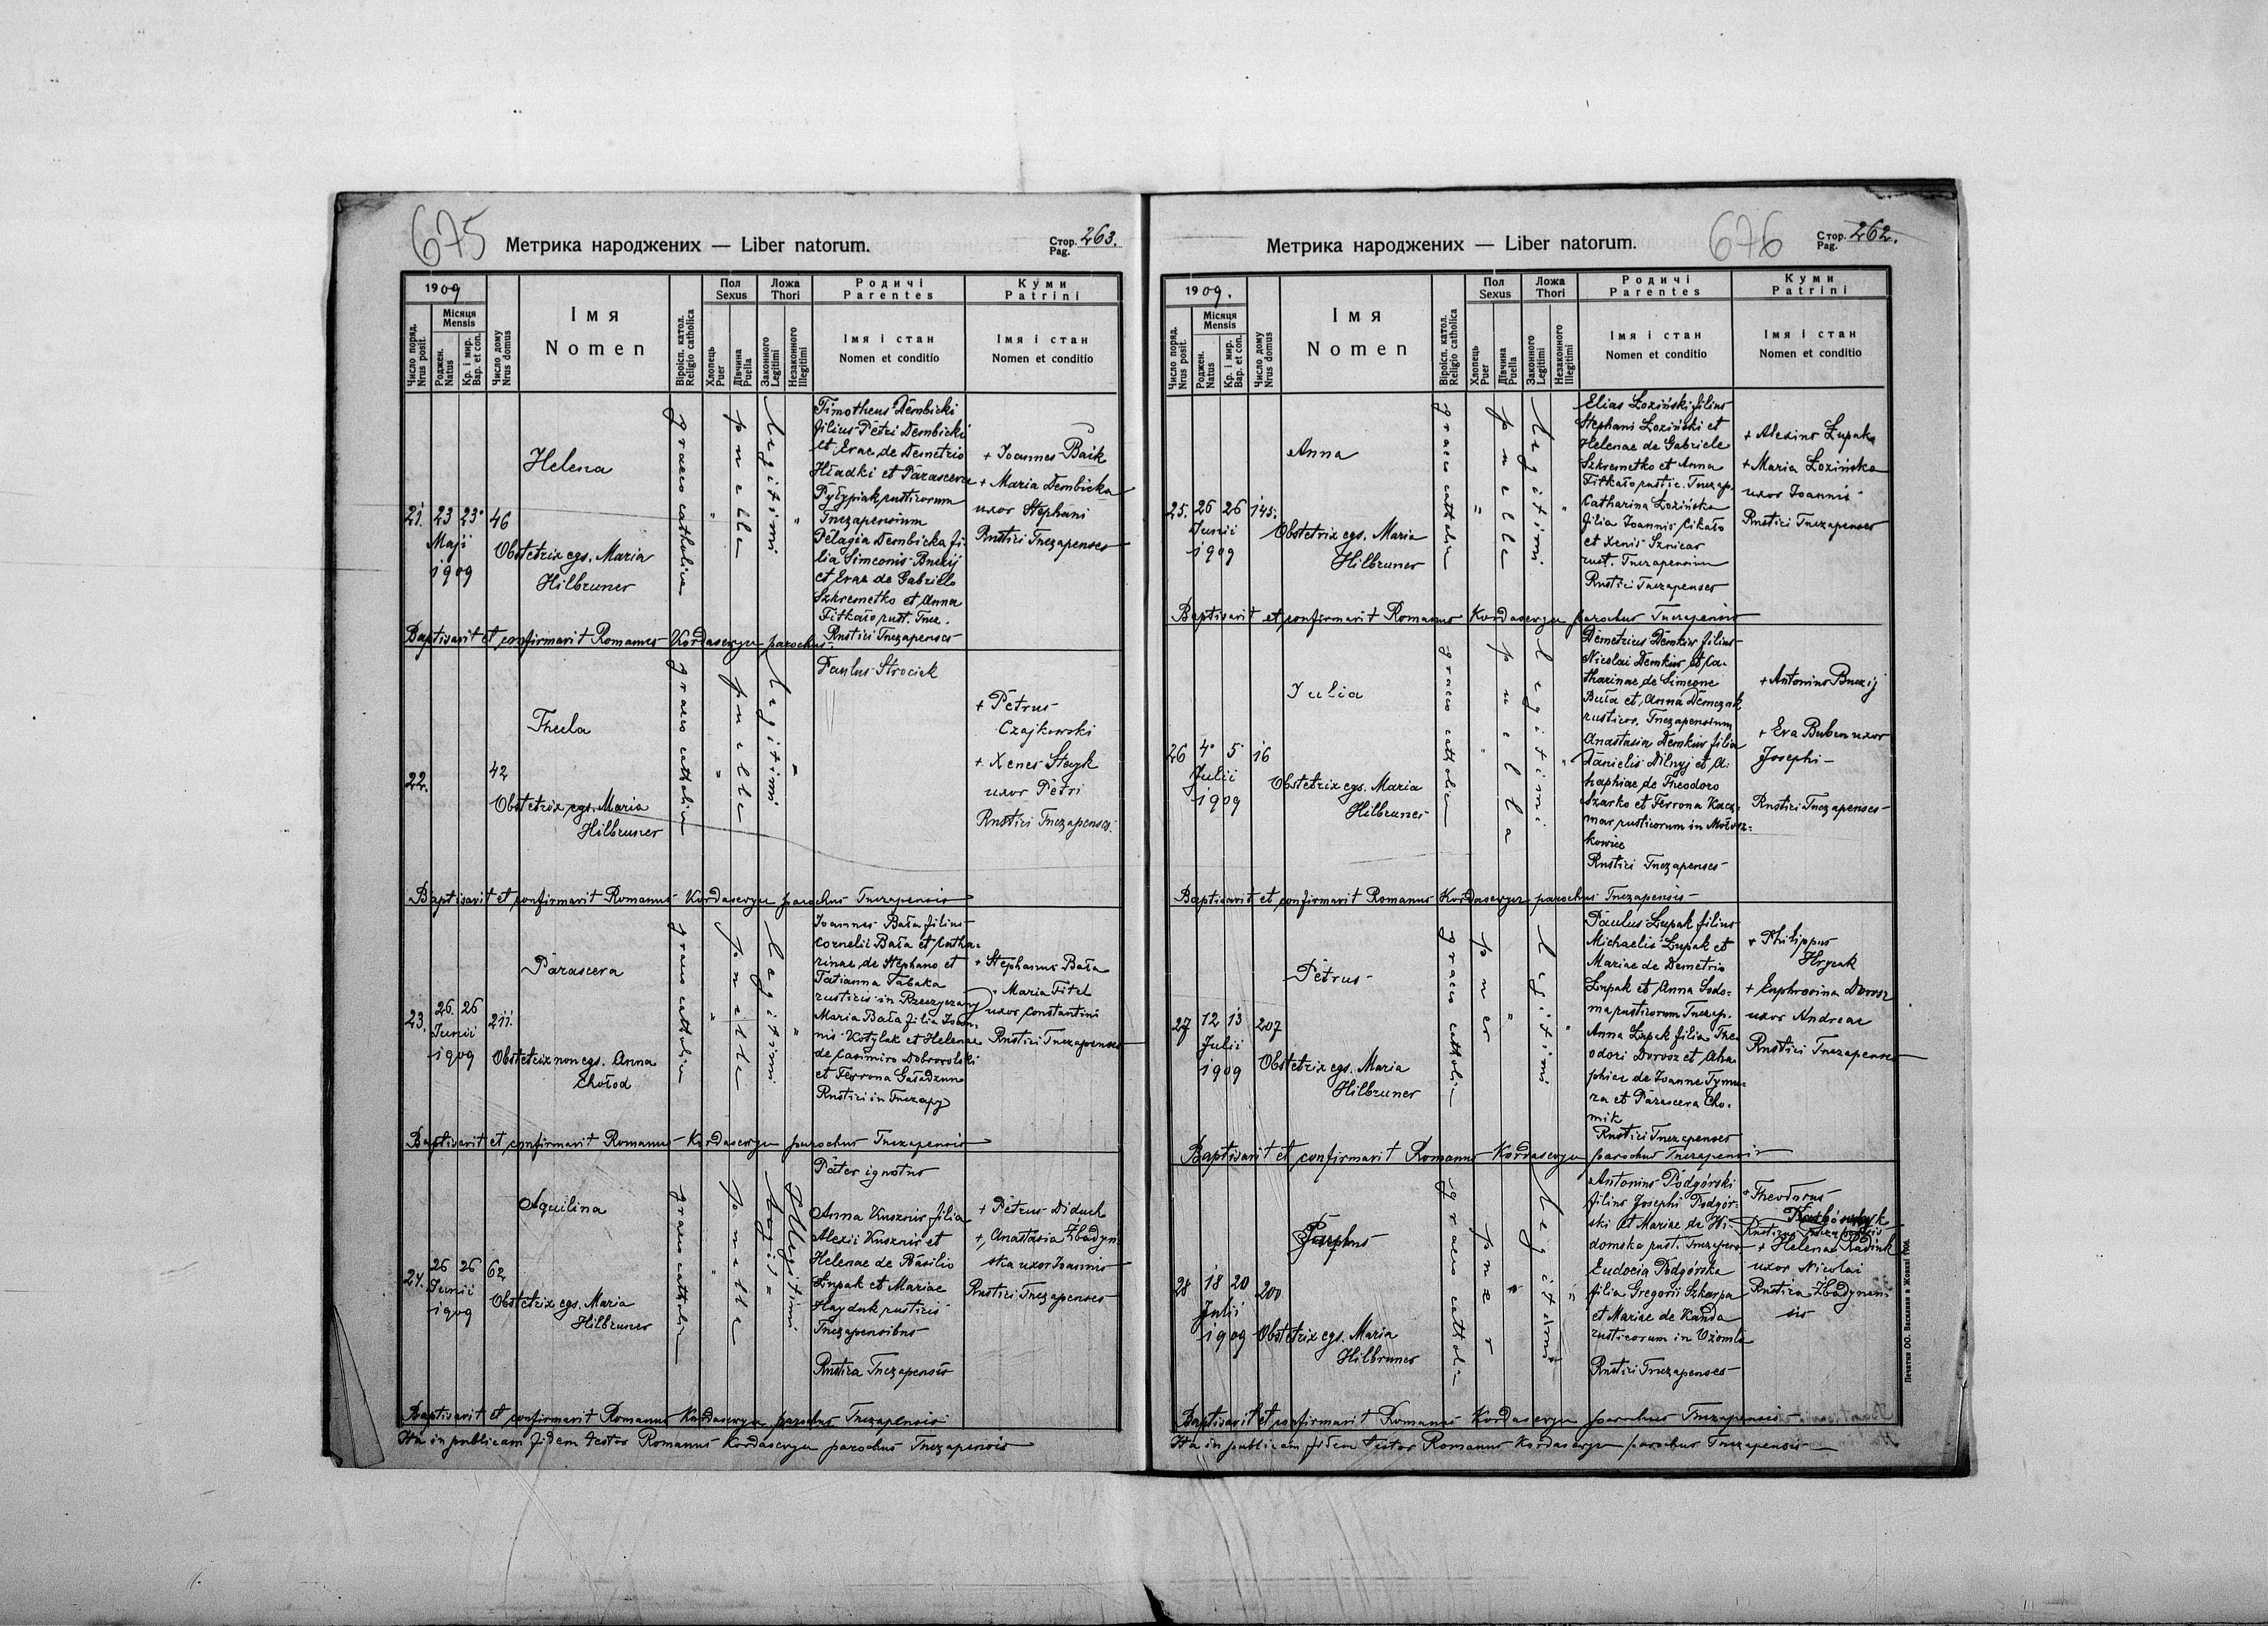 675
Метрика народжених — Liber natorum.
Стор. 263.
Pag.
1909
Число поряд. Nrus posit.
Місяця
Mensis
Роджен. Natus
Кр. і мир. Bap. et con.
Число дому Nrus domus
Імя
Nomen
Віроісп. катол. Religio catholica
Пол
Sexus
Хлопець Puer
Дівчина Puella
Ложа
Thori
Законного Legitimi
Незаконного Illegitimi
Родичі
Parentes
Імя і стан
Nomen et conditio
Куми
Patrini
Імя і стан
Nomen et conditio
21. 23 23 46
Maji
1909
Helena
Obstetrix egs. Maria
Hilbruner
graeco catholica
puella
legitimi
Timotheus Dembicki
filius Petri Dembicki
et Evae de Demetrio
Hładki et Parasceva
rusticorum
Tuczapensium
Pelagia Dembicka fi-
lia Simeonis Buczij
et Evae de Gabriele
Szkremetko et Anna
Fitkało rust. Tucz.
Rustici Tuczapenses
+ Joannes Baik
+ Maria Dembicka
uxor Stephani
Rustici Tuczapenses
Baptisavit et confirmavit Romanus Kordasewycz parochus
22. 42
Thecla
Obstetrix egs. Maria
Hilbruner
graeco catholica
puella
legitimi
Paulus Strociak
+ Petrus
Czajkowski
+ Xenes
uxor Petri
Rustici Tuczapenses
Baptisavit et confirmavit Romanus Kordasewycz parochus Tuczapensis
23. 26 26 211.
Junii
1909
Parasceva
Obstetrix non egs. Anna
Chołod
graeco catholica
puella
legitimi
Joannes Bała filius
Cornelii Bała et Catha-
rinae de Stephano et
Tatianna Tabaka
rusticis in Rzeczyczany
Maria Bała filia Joan-
nis Kotylak et Helenae
de Casimiro Dobrowolski
et Ferrona
Rustici in Tuczapy
+ Stephanus Bała
Maria Fitel
uxor Constantini
Rustici Tuczapenses
Baptisavit et confirmavit Romanus Kordasewycz parochus Tuczapensis
24. 26 26 62
Junii
1909
Aquilina
Obstetrix egs. Maria
Hilbruner
graeco catholica
puella
Illegitimi
Pater ignotus
Anna Kusznir filia
Alexii Kusznir et
Helenae de Basilio
Łupak et Mariae
Hayduk rusticis
Tuczapensibus
Rustica Tuczapensis
+ Petrus Diduch
+ Anastasia Zbadyn-
ska uxor Joannis
Rustici Tuczapenses
Baptisavit et confirmavit Romanus Kordasewycz parochus Tuczapensis
Ita in publicam fidem testor Romanus Kordasewycz parochus Tuczapensis
676
Метрика народжених — Liber natorum.
Стор. 262.
Pag.
1909.
Число поряд. Nrus posit.
Місяця
Mensis
Роджен. Natus
Кр. і мир. Bap. et con.
Число дому Nrus domus
Імя
Nomen
Віроісп. катол. Religio catholica
Пол
Sexus
Хлопець Puer
Дівчина Puella
Ложа
Thori
Законного Legitimi
Незаконного Illegitimi
Родичі
Parentes
Імя і стан
Nomen et conditio
Куми
Patrini
Імя і стан
Nomen et conditio
25. 26 26 145.
Junii
1909
Anna
Obstetrix egs. Maria
Hilbruner
graeco catholica
puella
legitimi
Elias Łoziński filius
Stephani Łoziński et
Helenae de Gabriele
Szkremetko et Anna
Fitkało rustic. Tuczap.
Catharina Łozińska
filia Joannis Cikało
et Xenis
rust. Tuczapensium
Rustici Tuczapenses
+ Alexius Łupak
+ Maria Łozińska
uxor Joannis
Rustici Tuczapenses
Baptisavit et confirmavit Romanus Kordasewycz parochus Tuczapensis
26 4 5 16
Julii
1909
Julia
Obstetrix egs. Maria
Hilbruner
graeco catholica
puella
legitimi
Demetrius Demkiw filius
Nicolai Demkiw et Ca-
tharinae de Simeone
Buła et Anna Demczak
rusticor. Tuczapensium
Anastasia Demkiw filia
Danielis Dilnyj et A-
haphiae de Theodoro
Szarko et Ferrona Kacz-
mar rusticorum in Mołosz-
kowice
Rustici Tuczapenses
+ Antonius Buczij
+ Eva Buben uxor
Josephi
Rustici Tuczapenses
Baptisavit et confirmavit Romanus Kordasewycz parochus Tuczapensis
27 12 13 207
Julii
1909
Petrus
Obstetrix egs. Maria
Hilbruner
graeco catholica
puer
legitimi
Paulus Łupak filius
Michaelis Łupak et
Mariae de Demetrio
Łupak et Anna Sodo-
ma rusticorum Tuczap.
Anna Łupak filia The-
odori Dorosz et Aha-
phiae de Joanne Tymu-
ra et Parasceva Cho-
mik
Rustici Tuczapenses
+ Philippus
Hrycak
+ Euphrosina Dorosz
uxor Andreae
Rustici Tuczapenses
Baptisavit et confirmavit Romanus Kordasewycz parochus Tuczapensis
28 18 20 200
Julii
1909
Obstetrix egs. Maria
Hilbruner
graeco catholica
puer
legitimi
Antonius Podgórski
filius Josephi Podgór-
ski et Mariae de Wi-
domska rust. Tuczapens.
Eudocia Podgórska
filia Gregorii Szkarpa
et Mariae de Kanda
rusticorum in Wzomla
Rustici Tuczapenses
+ Theodorus
+ Helena
uxor Nicolai
Rustica Zbadynen-
sis
Baptisavit et confirmavit Romanus Kordasewycz parochus Tuczapensis
Ita in publicam fidem testor Romanus Kordasewycz parochus Tuczapensis